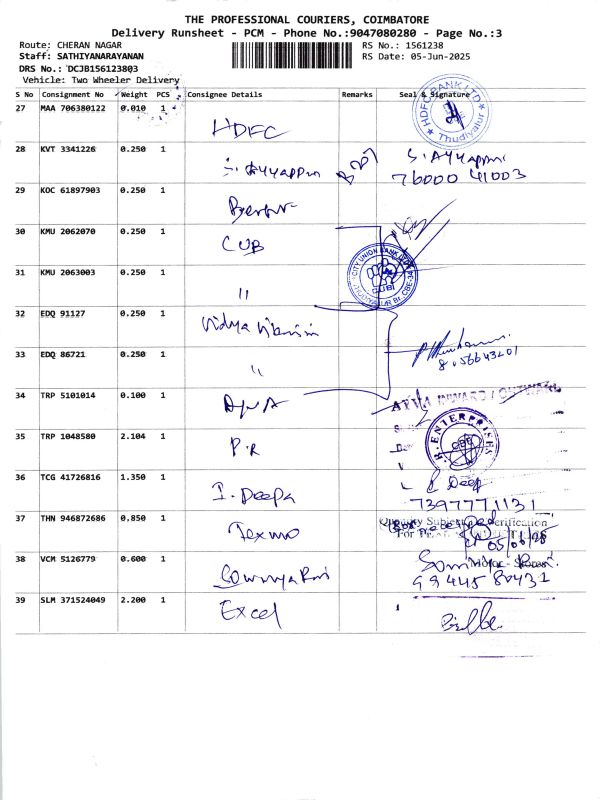 THE PROFESSIONAL COURIERS, COIMBATORE
Delivery Runsheet - PCM - Phone No.:9047080280 - Page No.:3
Route: CHERAN NAGAR RS No.: 1561238
Staff: SATHIYANARAYANAN RS Date: 05-Jun-2025
DRS No.: DCJB156123803
Vehicle: Two Wheeler Delivery
S No Consignment No Weight PCS Consignee Details Remarks Seal & Signature
27 MAA 706380122 0.010 1 HDFC HDFC BANK LTD Thudiyalur
28 KVT 3341226 0.250 1 S. Ayyappan S. Ayyappan
76000 41003
29 KOC 61897903 0.250 1
30 KMU 2062070 0.250 1 CUB
CITY UNION BANK LTD CUB
31 KMU 2063003 0.250 1 "
32 EDQ 91127 0.250 1 Vidya
33 EDQ 86721 0.250 1 "
8056643201
34 TRP 5101014 0.100 1 INWARD / OUTWARD
35 TRP 1048580 2.104 1 P.R R. ENTERPRISES CBE
36 TCG 41726816 1.350 1 I. Deepa I. Deep
7397771131
37 THN 946872686 0.850 1 Texmo Quantity Subject to Verification
For
05/06/25
38 VCM 5126779 0.600 1 Sowmya Rani Motor - Stores
99445 80431
39 SLM 371524049 2.200 1 Excel